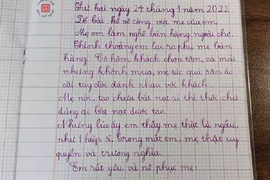 Thứ hai ngày 24 tháng 1 năm 2022
Đề bài: kể về công việc mẹ của em.
Mẹ em làm nghề bán hàng ngoài chợ.
Thỉnh thoảng em lại ra phụ mẹ bán
hàng. Có hôm khách chọn tôm, cá mãi
nhưng không mua, mẹ tức quá sắn áo
cãi tay đôi đanh nhau với khách.
Mẹ nói, tao chưa bắt nạt ai thì thôi chứ
đừng ai bắt nạt được tao.
Những lúc ấy em thấy mẹ thật là ngầu,
như 1 hiệp sĩ. Trong mắt em, mẹ thật uy
quyền và trượng nghĩa.
Em rất yêu và nể phục mẹ.